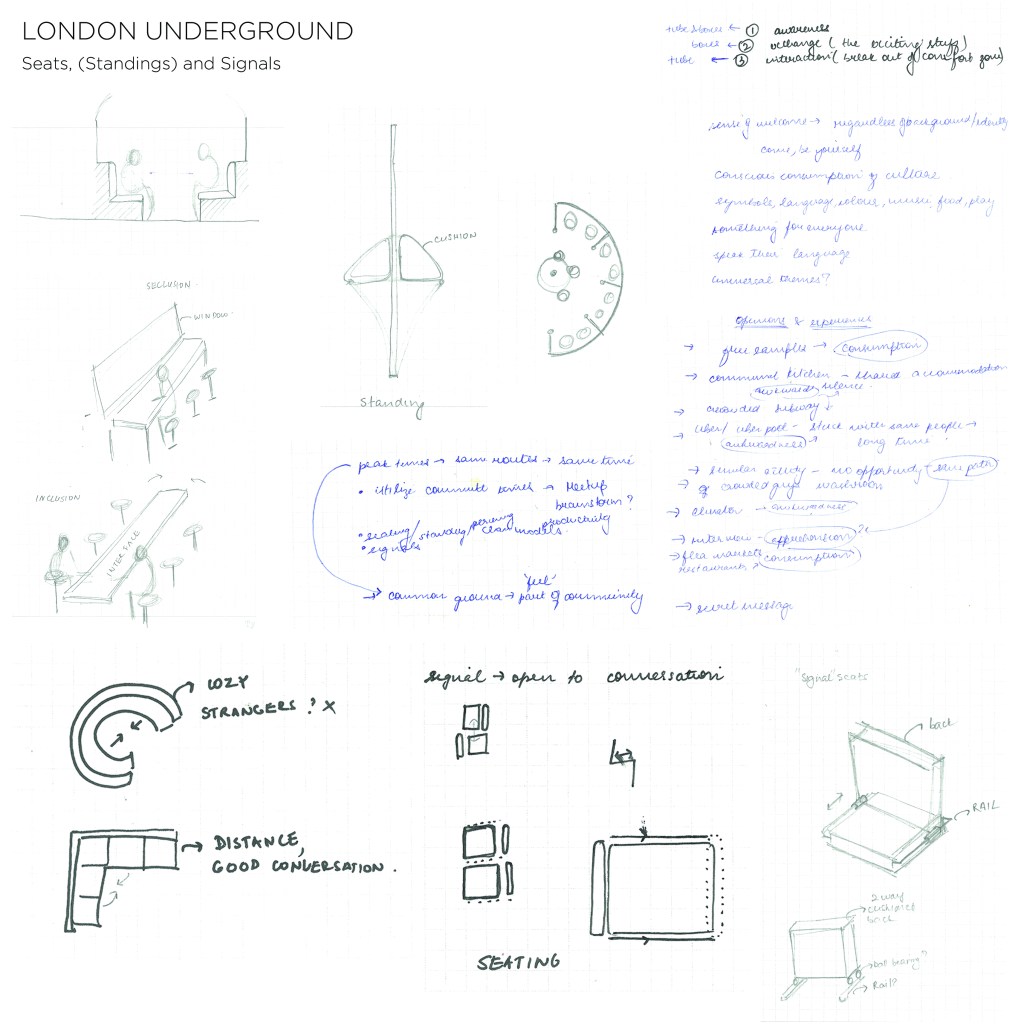 LONDON UNDERGROUND
Seats, (Standings) and Signals
tube & boxes ← ① awareness
boxes ← ② exchange ( the exciting stuff)
tube ← ③ interaction ( break out of comfort zone)
sense of welcome → regardless of background/identity
come, be yourself
conscious consumption of culture
symbols, language, colour, music, food, play
something for everyone
speak their language
commercial themes?
CUSHION
Standing
SECLUSION
WINDOW
INCLUSION
INTERFACE
peak times → same routes → same time
• utilize commute levels → Meetup
brainstorm?
productivity
• seating/standing/ perching
• signals
common ground → 'feel' part of community
& experiences
→ free samples → consumption
→ communal kitchen - shared accommodation
awkward silence.
→ crowded subway
→ uber/ uber pool - stuck with same people →
awkwardness long time!
→ similar study - no opportunity - same path
→ elevator - awkwardness
→ interview - apprehension
→ flea markets
restaurants consumption
→ secret message
COZY
STRANGERS? X
DISTANCE,
GOOD CONVERSATION.
signal → open to conversation
SEATING
"signal" seats
back
RAIL
2 way
cushioned
back
"ball bearing"
Rail?